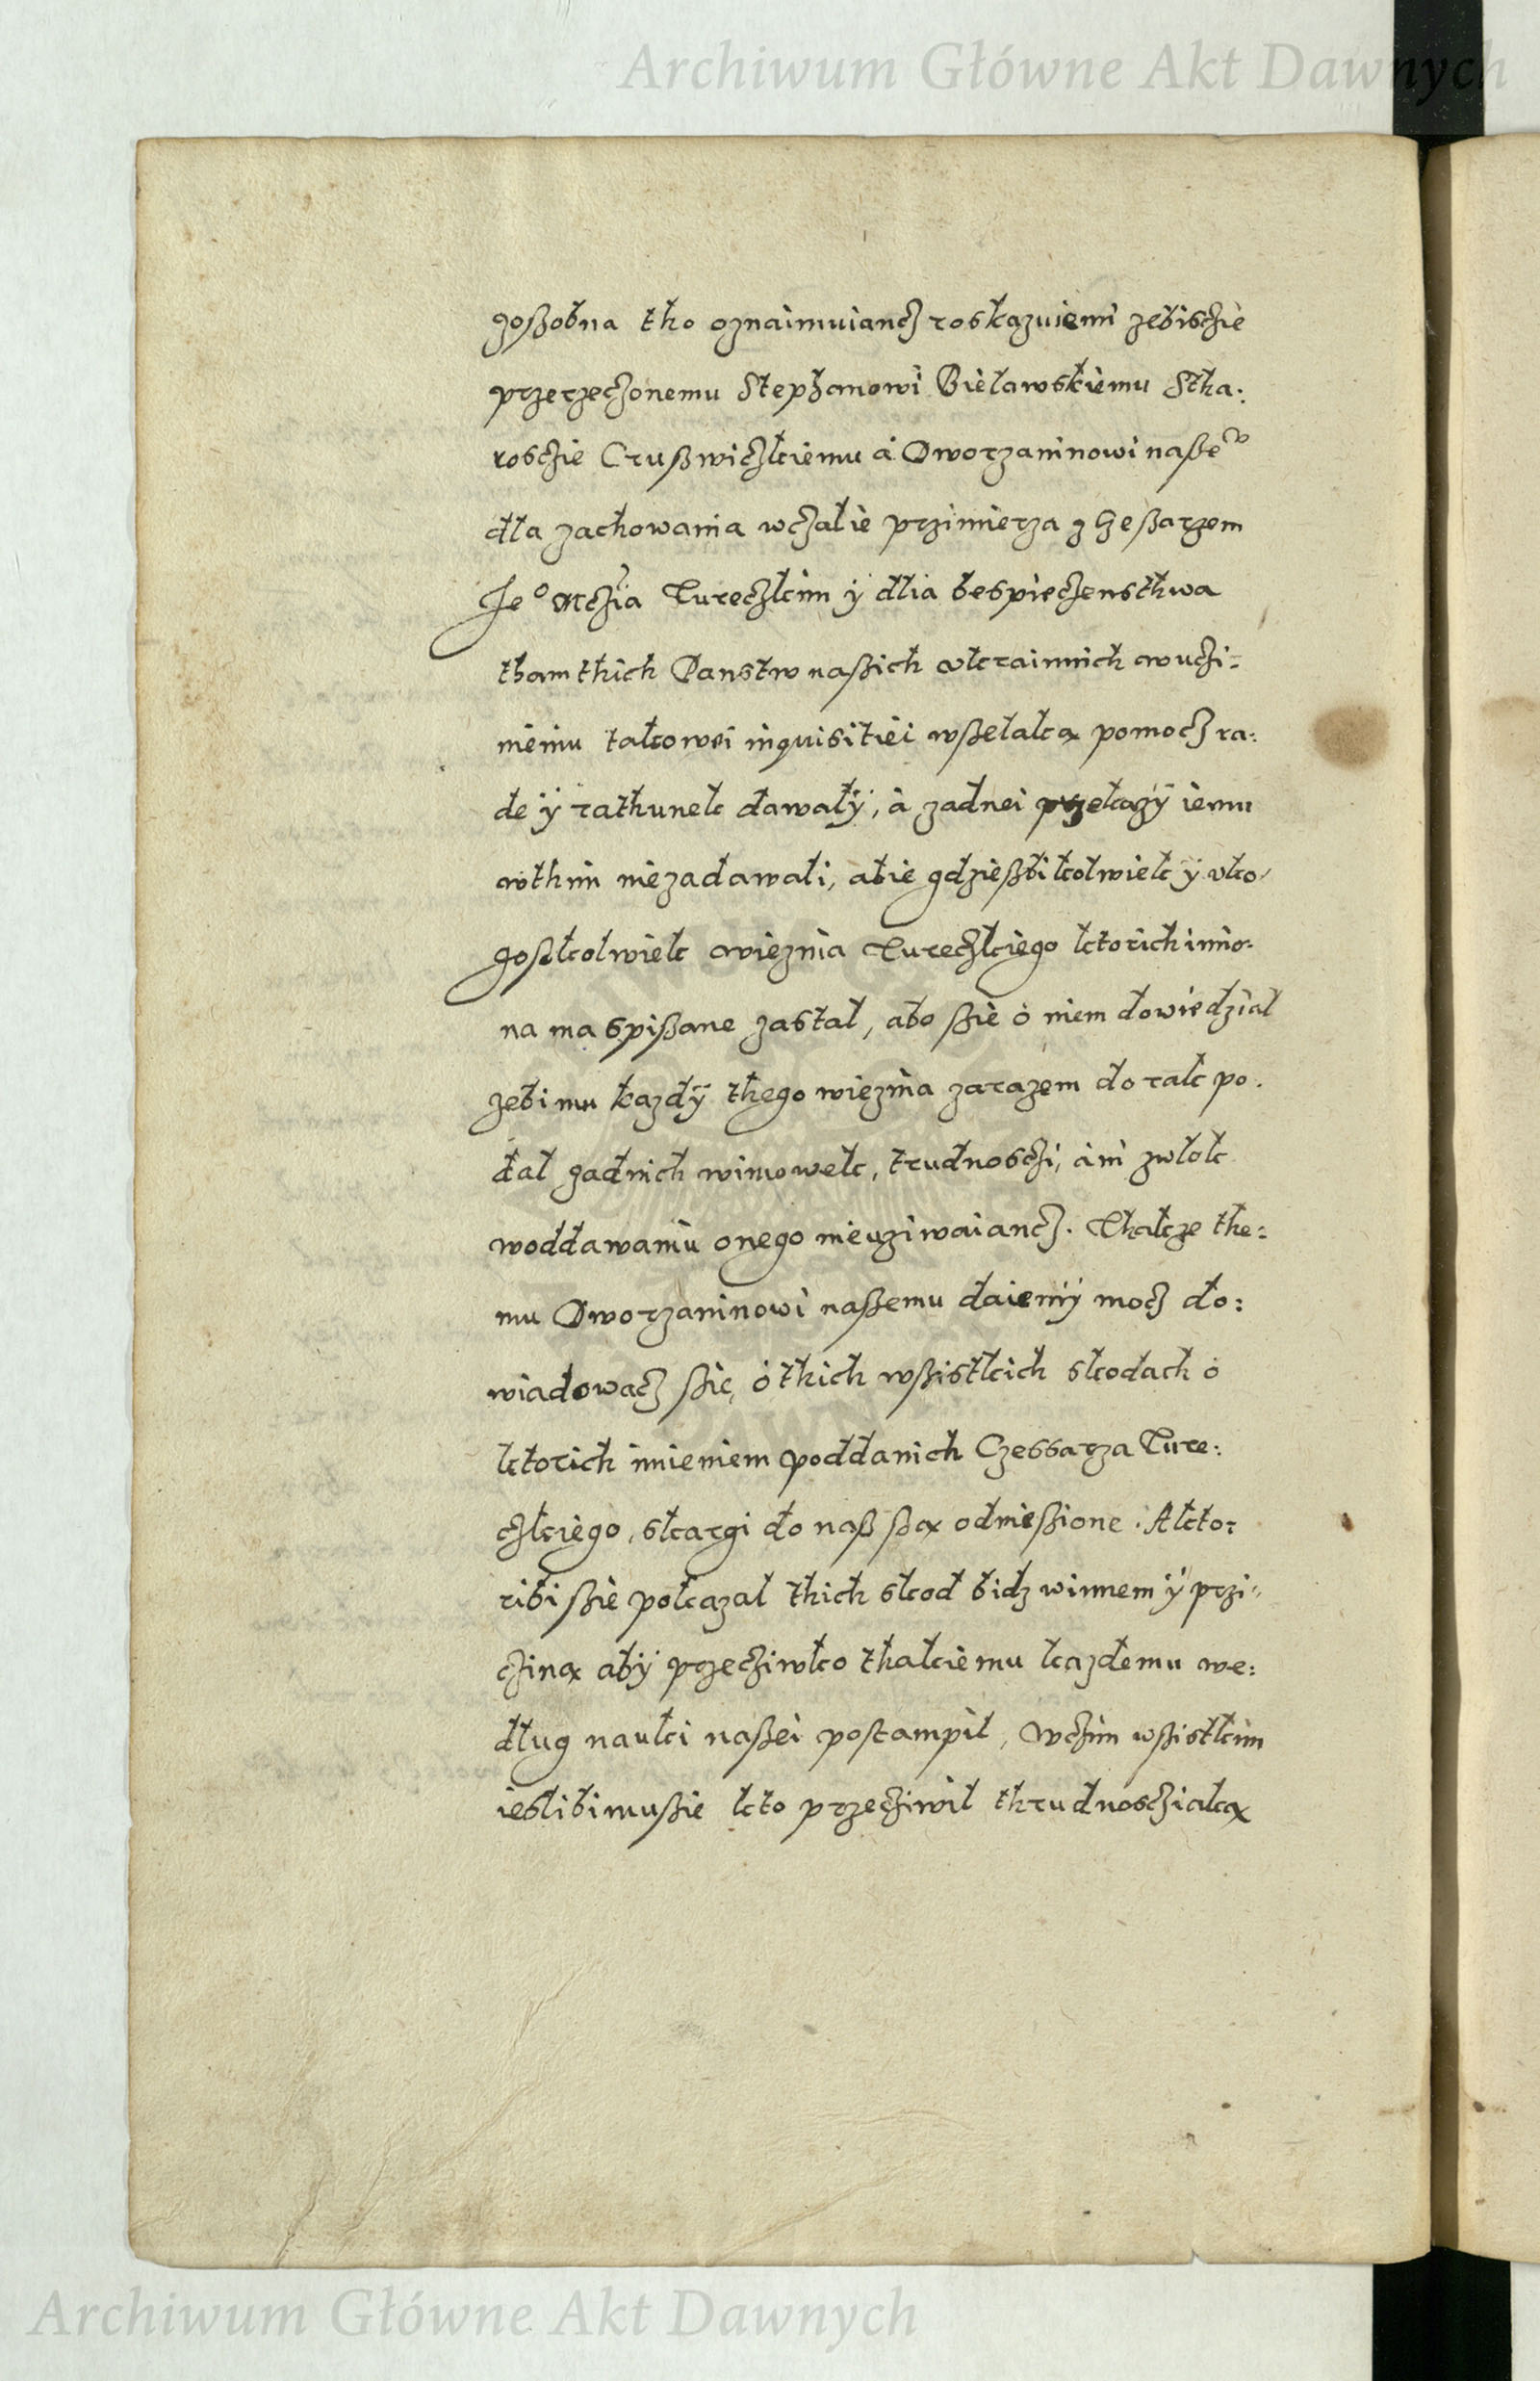 Archiwum Główne Akt Dawnych
zoßobna tho oznaimuiancz roskazuiemi zebisczie
przerzeczonemu Stephanowi Bielawskiemu Stha:
rosczie Crußwiczkiemu á Dworzaninowi naßeº
dla zachowania wczalie przimierza z Czeßarzem
Jeº Mczia Tureczkim ÿ dlia bespieczensthwa
tham thich Panstw naßich vkrainnich wuczi:
nieniu takowei inquisitiei wßelaką pomocz ra:
de ÿ rathunek dawalÿ, à zadnei przekazÿ iemu
wthim niezadawali, abie gdzießbikolwiek ÿ vko
goßkolwiek wieznia Tureczkiego ktorich imio:
na ma spißane zastal, abo ßie ò niem dowiedzial
zebi mu kazdÿ thego wieznia zarazem do rak po.
dal zadnich wimowek, trudnosczi, áni zwlok
woddawaniu onego nieuziwaiancz. Thakze the:
mu Dworzaninowi naßemu daiemÿ mocz do:
wiadowacz ßie, ò thich wßistkich skodach ò
ktorich imieniem poddanich Czessarza Ture:
czkiego, skargi do naß ßą odnießione. A kto:
ribi ßie pokazal thich skod bidz winnem ÿ przi:
cziną abÿ przecziwko thakiemu kazdemu we:
dlug nauki naßei postampil, Wczim wßistkim
ieslibi mu ßie kto przecziwil thrudnoscziaką
Archiwum Główne Akt Dawnych